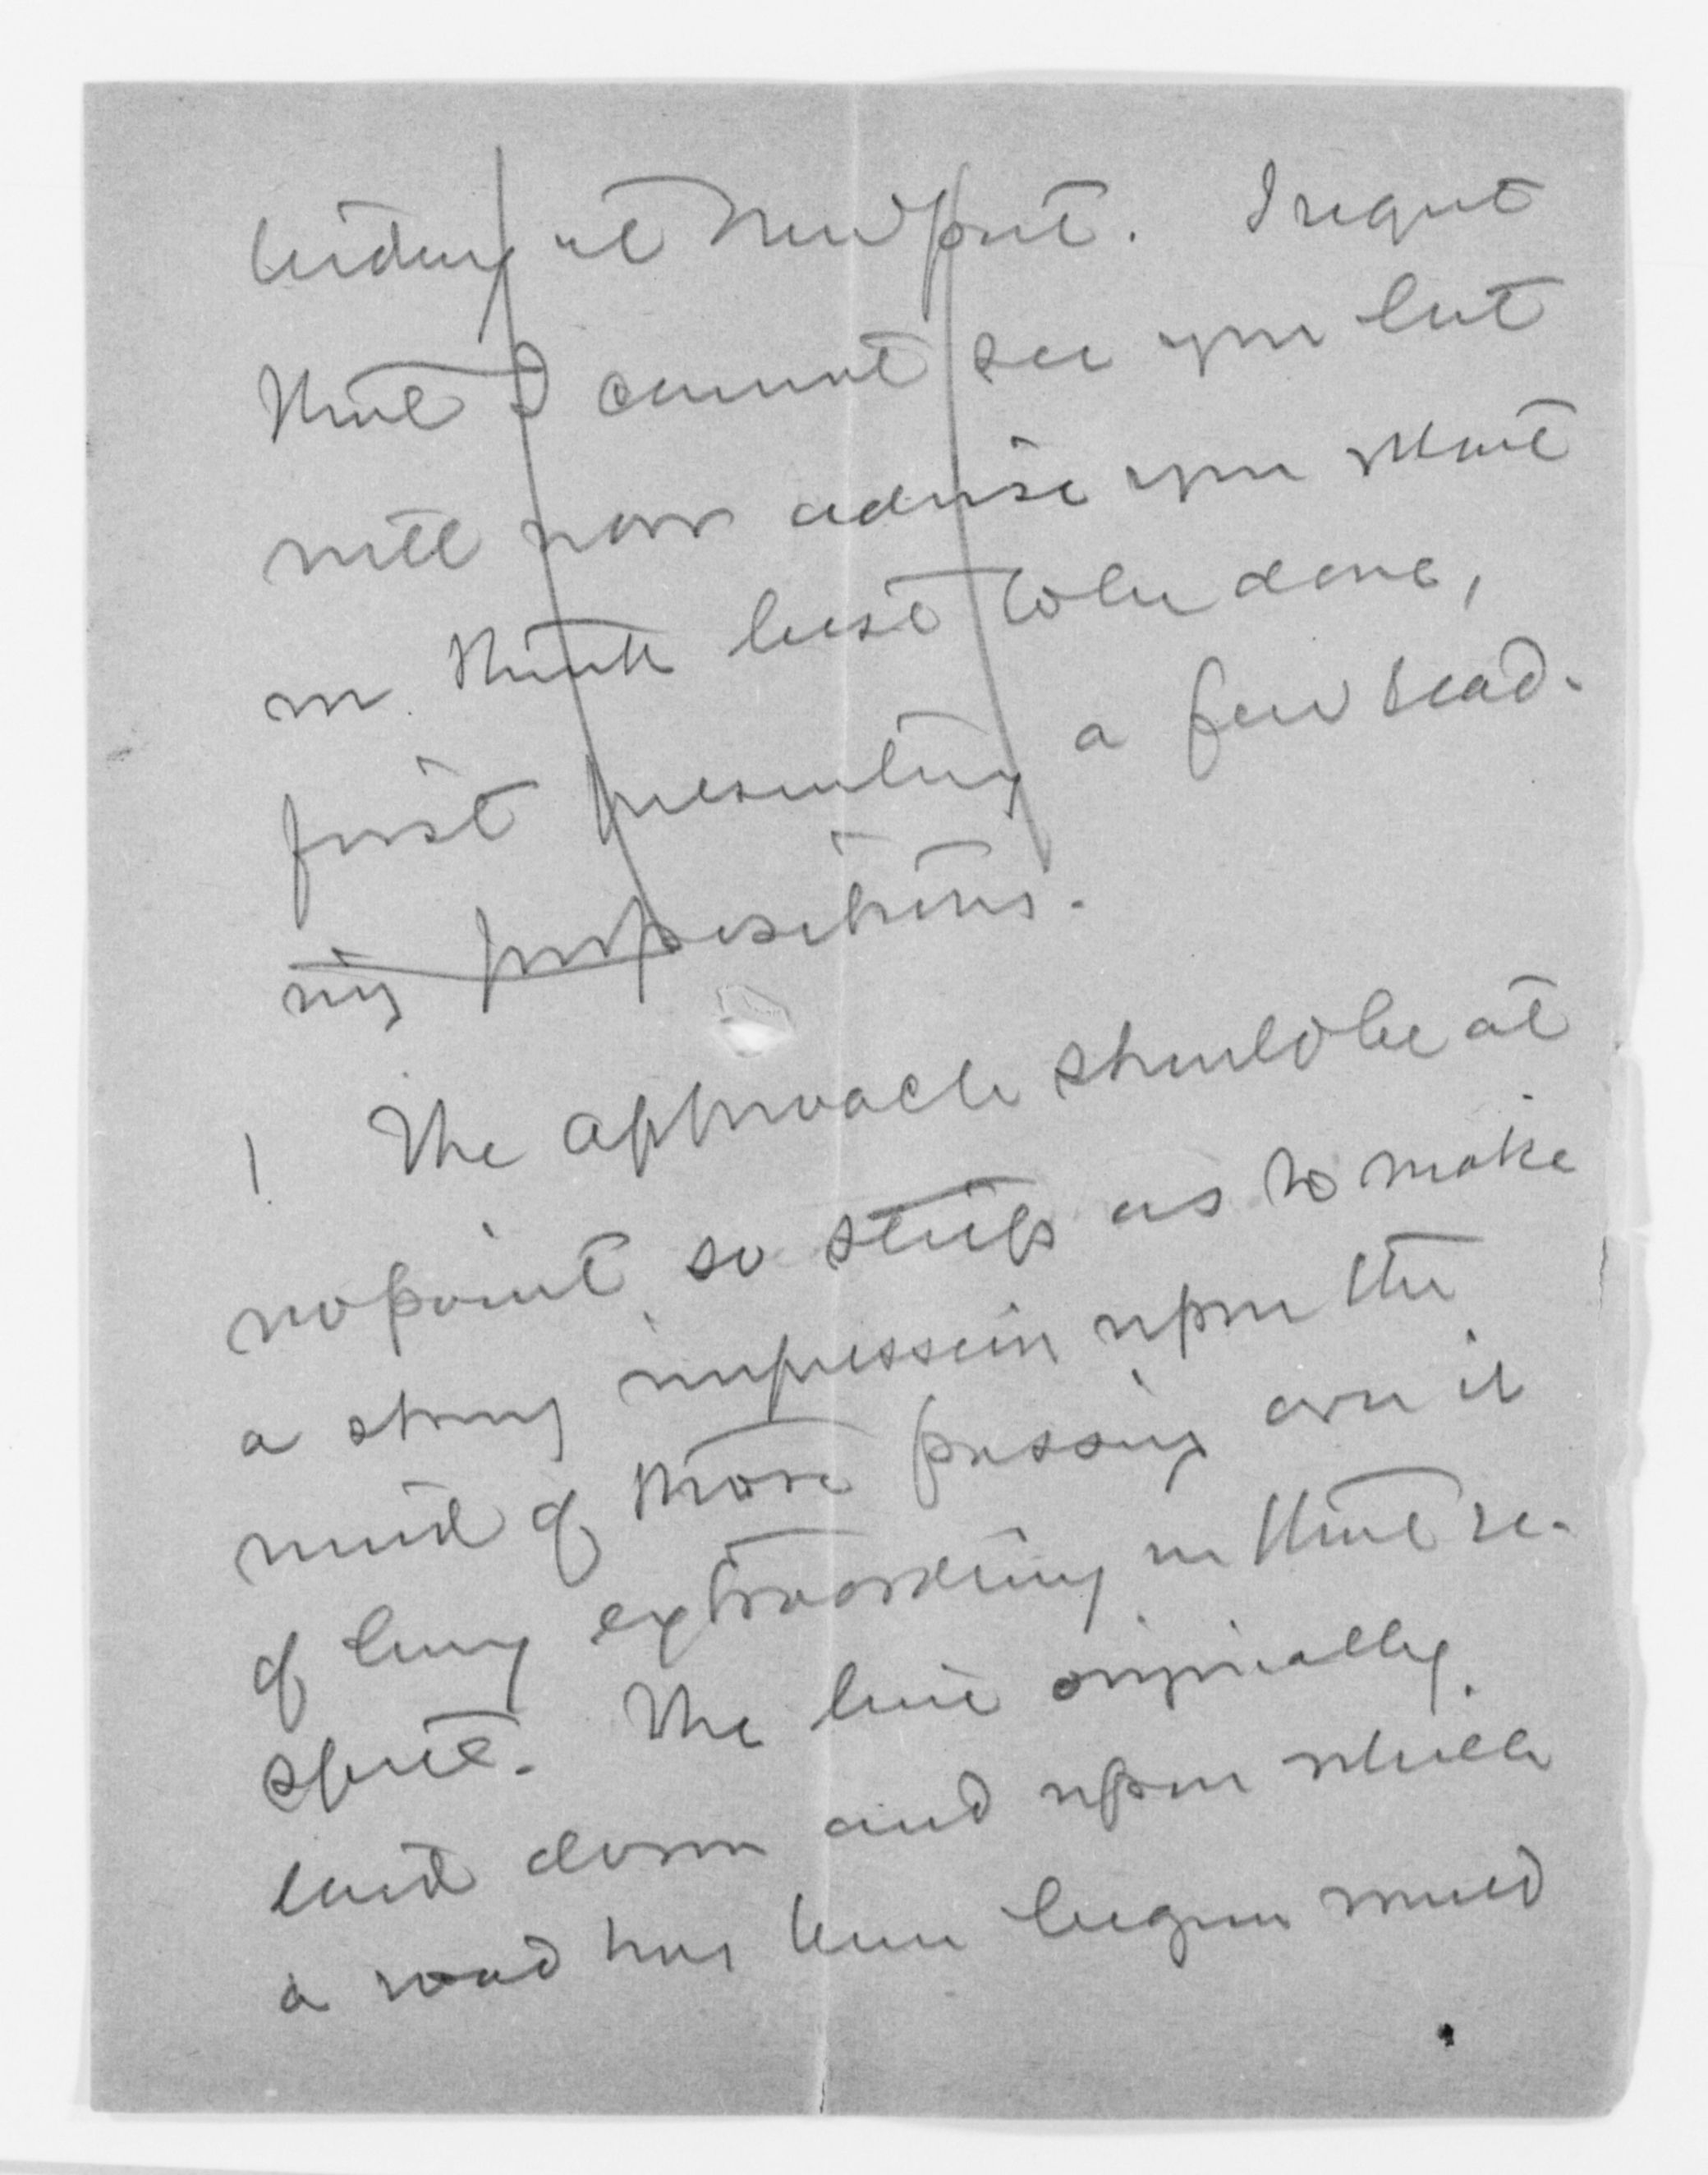 at Newport. I regret
that I cannot see you but
will now advise you what
we think best to be done,
first presenting a few lead-
ing propositions.
1 The approach should be at
no point so steep as to make
a strong impression upon the
mind of those passing over it
of being extraordinary in that re-
spect. The line originally
laid down and upon which
a road has been begun would